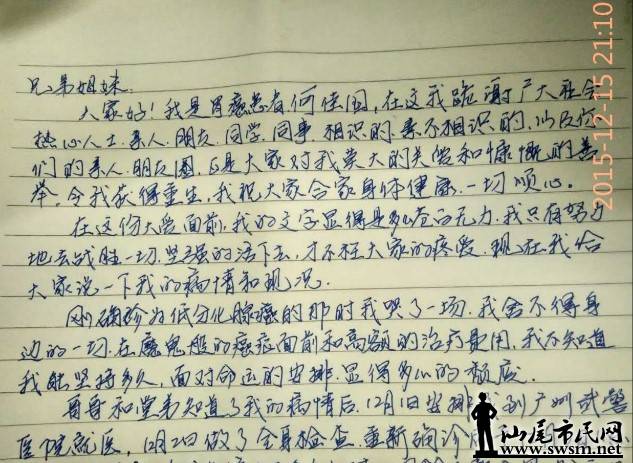 兄弟姐妹.
大家好!我是胃癌患者何佳国,在这我跪谢广大社会
热心人士.亲人.朋友.同学.同事.相识的.素不相识的,以及你
们的亲人.朋友圈,是大家对我莫大的关爱和慷慨的善
举,令我获得重生,我祝大家合家身体健康.一切顺心。
在这份大爱面前,我的文字显得是多么苍白无力.我只有努力
地去战胜一切.坚强的活下去,才不枉大家的疼爱.现在我给
大家说一下我的病情和现况.
刚确诊为低分化腺癌的那时我哭了一场.我舍不得身
边的一切.在魔鬼般的癌症面前和高额的治疗费用,我不知道
我能坚持多久,面对命运的安排.显得多么的颓废.
哥哥和堂弟知道了我的病情后.12月1日安排 到广州武警
医院就医,12月2日做了全身检查.重新确诊
2015-12-15 21:10
汕尾市民网
www.swsm.net